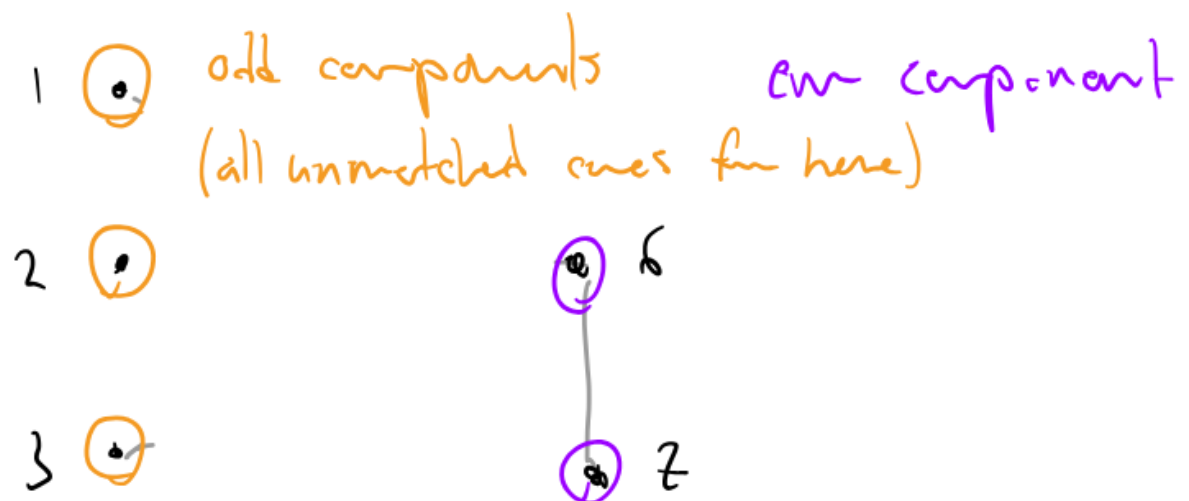 1 odd components even component
(all unmatched ones from here)
2 6
3 7